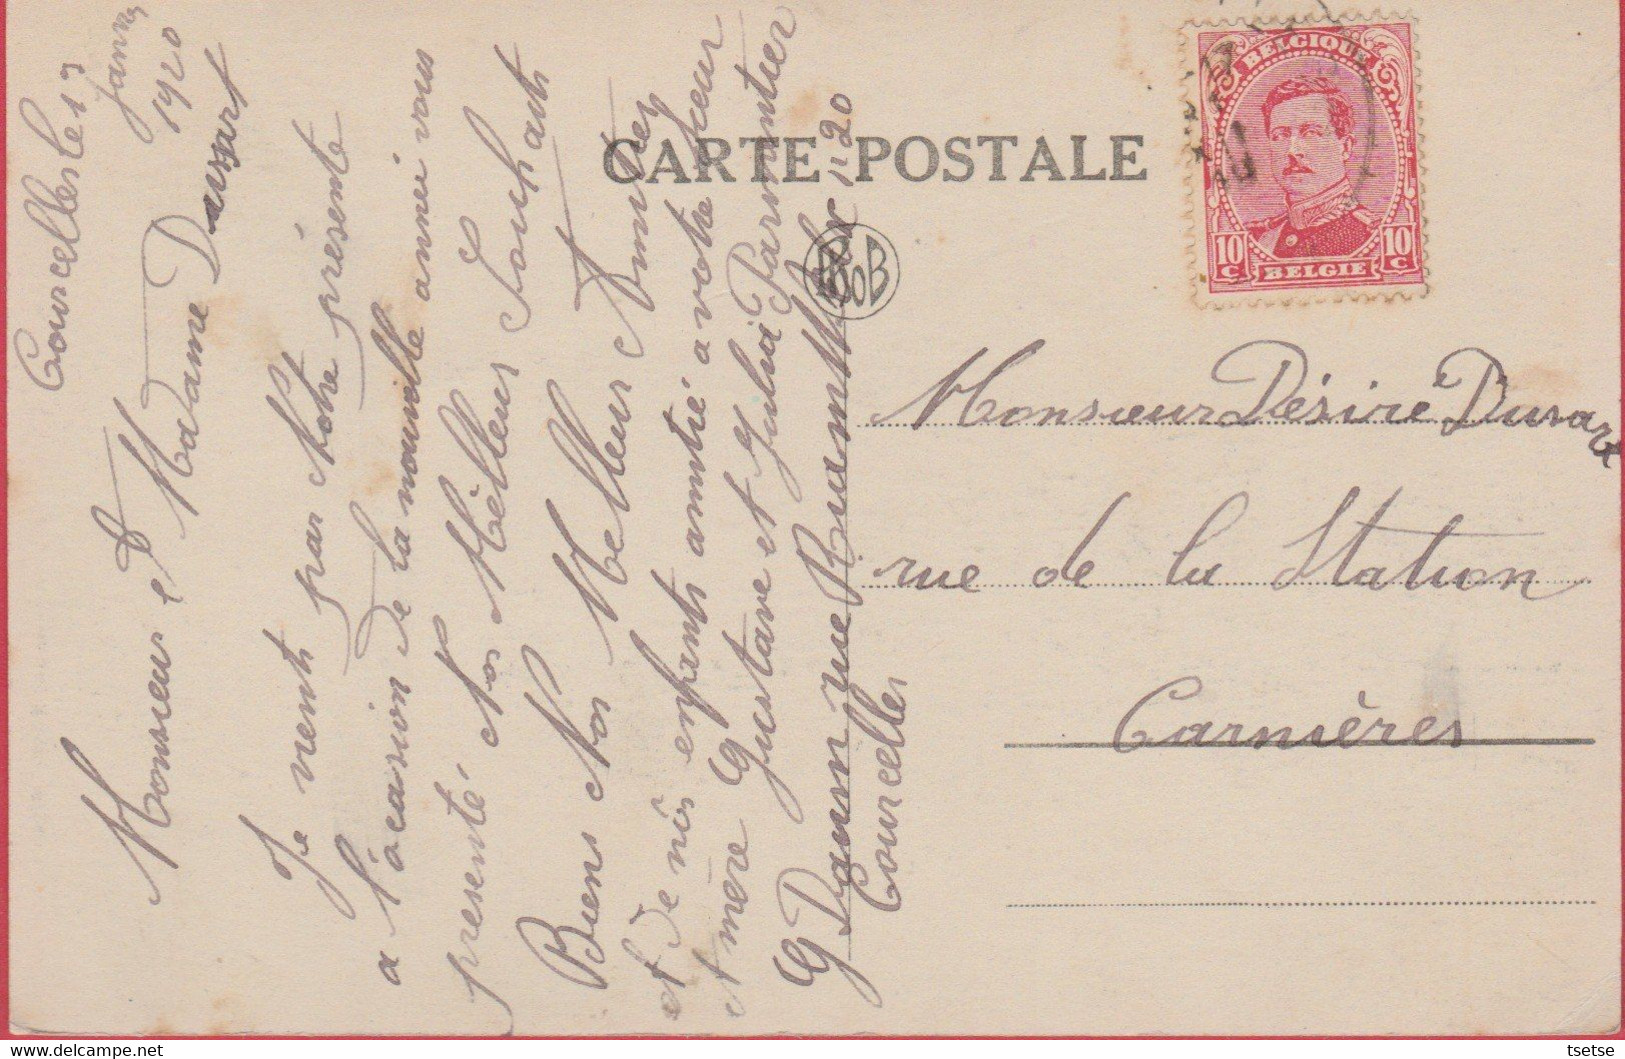 Courcelles le 19
Janv
1920
Monsieur et Madame Dussart
Je vient par Notre présente
a l'ocasion de la nouvelle année vous
presenté Nos Mèlleurs Souhaits
Biens Nos Melleurs Amitiés
et de nos enfants amitié a votre sœur
et mère Gustave et Julia Parmentier
G Daunn rue 120
Courcelles
CARTE POSTALE
BELGIQUE
10 C
10 C
BELGIE
Monsieur Désiré Dusart
rue de la Station
Carnières
tsetse